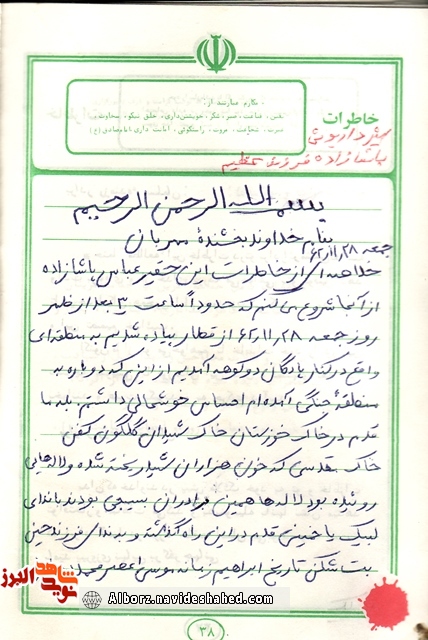 مکارم عبارتند از:
یقین، قناعت، صبر، شکر، خویشتن‌داری، خلق نیکو، سخاوت،
غیرت، شجاعت، مروت، راستگوئی، امانت داری (امام صادق (ع))
خاطرات
شهید داریوش
پاشازاده فرزند عظیم
بسم الله الرحمن الرحیم
بنام خداوند بخشنده مهربان
جمعه ۶۲/۱۱/۲۸
خلاصه‌ای از خاطرات این حقیر عباس پاشازاده
از آنجا شروع می‌کنم که حدوداً ساعت ۳ بعد از ظهر
روز جمعه ۶۲/۱۱/۲۸ از قطار پیاده شدیم به منطقه‌ای
واقع در کنار پادگان دوکوهه آمدیم از این که دوباره به
منطقهٔ جنگی آمده‌ام احساس خوشحالی داشتم. بله ما
قدم در خاک خوزستان خاک شهیدان گلگون کفن
خاک مقدسی که خون هزاران شهید ریخته شده و لاله‌هایی
روئیده بود لاله‌ها همین برادران بسیجی بودند با ندای
لبیک یا خمینی قدم در این راه گذاشته و به ندای فرزند حسین
بت شکن تاریخ ابراهیم زمانه موسی عصر محمد
شاهد
نوید
البرز
Alborz.navideshahed.com
۳۸